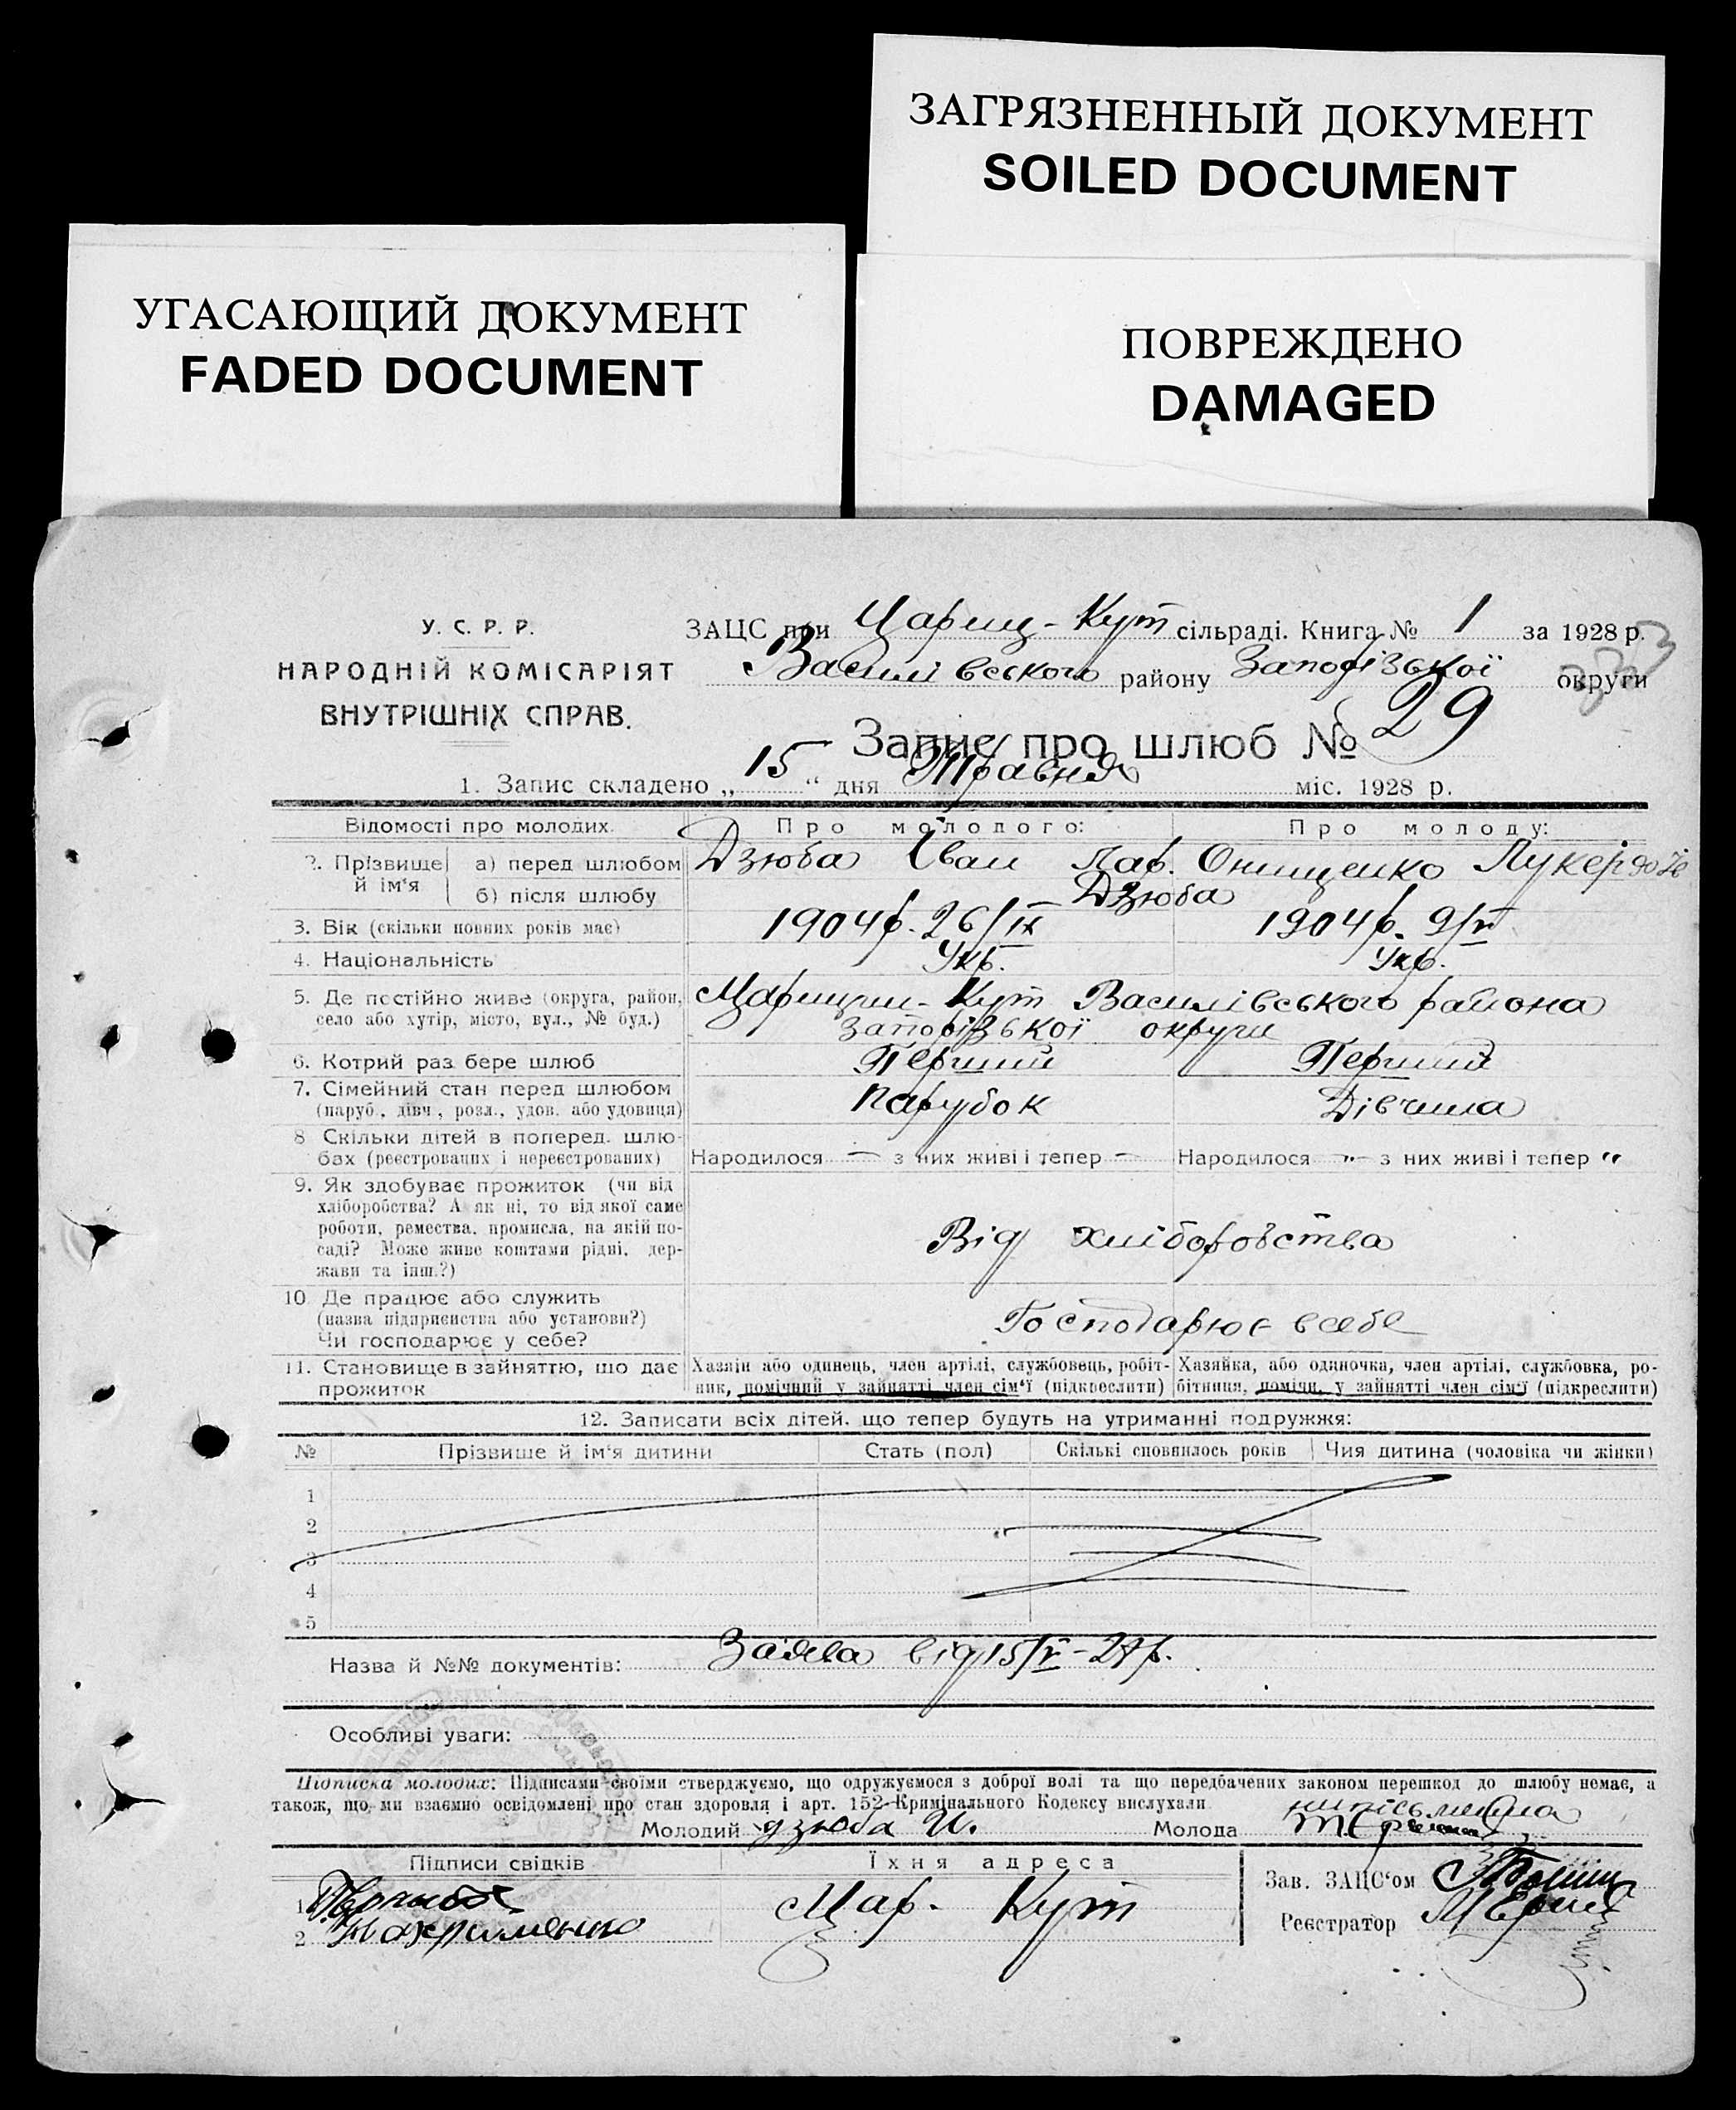 ЗАГРЯЗНЕННЫЙ ДОКУМЕНТ
SOILED DOCUMENT
УГАСАЮЩИЙ ДОКУМЕНТ
FADED DOCUMENT
ПОВРЕЖДЕНО
DAMAGED
У. С. Р. Р.
НАРОДНІЙ КОМІСАРІЯТ
ВНУТРІШНІХ СПРАВ.
ЗАЦС при Цариц-Кут сільраді. Книга № 1 за 1928 р.
Василівського району Запорізької округи
Запис про шлюб № 29
1. Запис складено „15“ дня Травня міс. 1928 р.
Відомості про молодих. Про молодого: Про молоду:
2. Прізвище й ім‘я а) перед шлюбом Дзюба Іван Лав. Онищенко Лукер
б) після шлюбу Дзюба
3. Вік (скільки повних років має) 1904р. 26/IX 1904р. 9/V
4. Національність Укр. Укр.
5. Де постійно живе (округа, район, Царицин-Кут Василівського района
село або хутір, місто, вул., № буд.) Запорізької округи
6. Котрий раз бере шлюб Перший Перший
7. Сімейний стан перед шлюбом Парубок Дівчина
(паруб., дівч., розл., удов. або удовиця)
8 Скільки дітей в поперед. шлю-
бах (реєстрованих і нереєстрованих) Народилося — з них живі і тепер — Народилося „ з них живі і тепер „
9. Як здобуває прожиток (чи від
хліборобства? А як ні, то від якої саме
роботи, ремества, промисла, на якій по-
саді? Може живе коштами рідні, дер-
жави та інш.?)
Від хліборобства
10. Де працює або служить
(назва підприємства або установи?)
Чи господарює у себе?
Господарює в себе
11. Становище в зайняттю, що дає
прожиток
Хазяін або одинець, член артілі, службовець, робіт-
ник, помічний у зайнятті член сім‘ї (підкреслити)
Хазяйка, або одиночка, член артілі, службовка, ро-
бітниця, поміч. у зайнятті член сім‘ї (підкреслити)
12. Записати всіх дітей, що тепер будуть на утриманні подружжя:
№ Прізвище й ім‘я дитини Стать (пол) Скількі сповнилось років Чия дитина (чоловіка чи жінки)
1
2
3
4
5
Назва й №№ документів: Заява від 15/V-
Особливі уваги:
Підписка молодих: Підписами своїми стверджуємо, що одружуємося з доброї волі та що передбачених законом перешкод до шлюбу немає, а
також, що ми взаємно освідомлені про стан здоровля і арт. 152 Кримінального Кодексу вислухали
Молодий Дзюба И. Молода
Підписи свідків Їхня адреса
1
2
Цар. Кут
Зав. ЗАЦС‘ом
Реєстратор